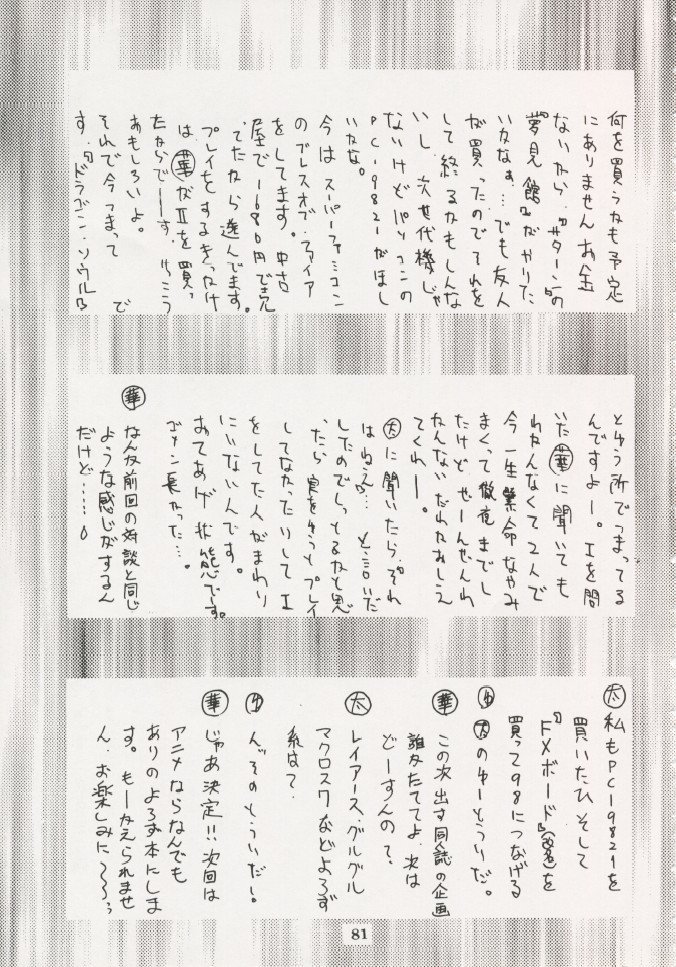 何を買うかも予定
にありません お金
ないから、『サターン』の
『夢見館』がやりた
いかなぁ…でも友人
が買ったのでそれを
して終るかもしんな
いし、次世代機じゃ
ないけどパソコンの
PC-9821がほし
いかな。
今はスーパーファミコン
のブレスオブ・ファイア
をしてます。中古
屋で1680円で売
ってたから遊んでます。
プレイをするきっかけ
は、華がⅡを買っ
たからでーす。けっこう
おもしろいよ。
それで今つまって
す。『ドラゴン・ソウル』で
とゆう所でつまってる
んですよー。Iを問
いた華に聞いても
わかんなくて2人で
今一生懸命なやみ
まくって徹夜までし
たけど ぜーんぜんわ
かんない だれかおしえ
てくれー。
太に聞いたら、「それ
はねえ…」と言いだ
したのでしってるかと思
ったら実をゆうとプレイ
してなかったりして I
をしてた人がまわり
にいないんです。
おてあげ状態です。
ゴメン長かった…。
華 なんか前回の対談と同じ
ような感じがするん
だけど……
太 私もPC-9821を
買いたひ そして
『FXボード』(改名)を
買って98につなげる
太のゆーとうりだ。
華 この次出す同人誌の企画
誰かたててよ、次は
どーすんの?
太 レイアース、グルグル
マクロスワなどよろず
系はて?
ん、そのとうりだー。
華 じゃあ決定!!次回は
アニメならなんでも
ありのよろず本にしま
す。もーかえられませ
ん。お楽しみに〜
81